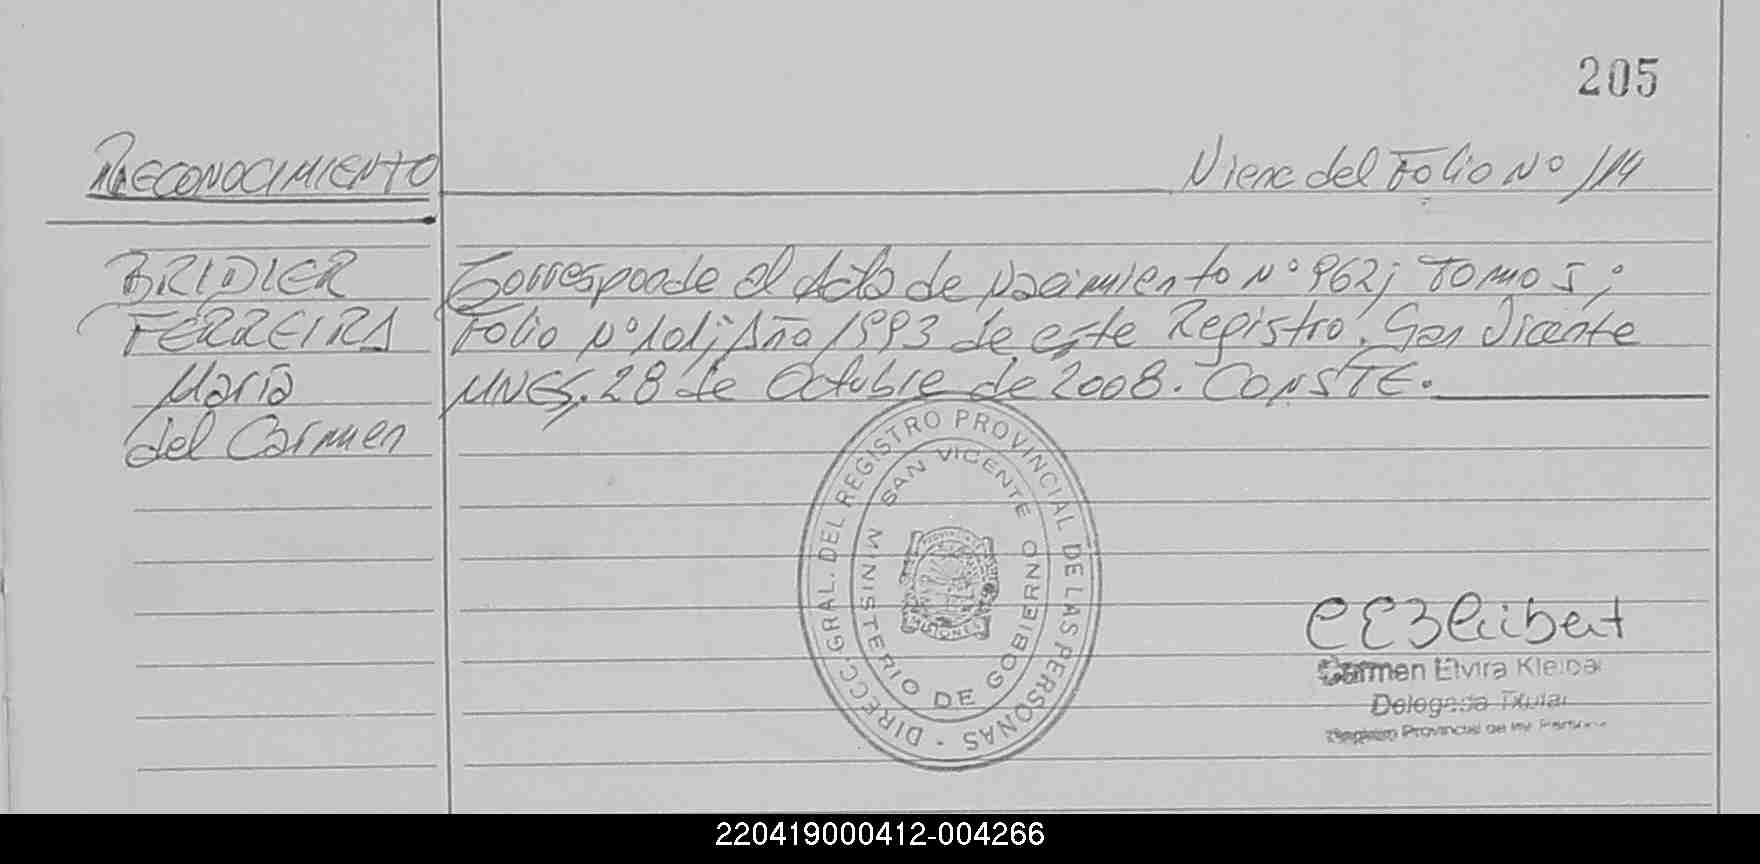 205
RECONOCIMIENTO
Viene del Folio Nº 114
BRIDIER
FERREIRA
María
del Carmen
Corresponde al Acta de Nacimiento Nº 962; TOMO I;
Folio Nº 101; Año 1993 de este Registro. San Vicente
MNES, 28 de Octubre de 2008. CONSTE.
DIRECC. GRAL. DEL REGISTRO PROVINCIAL DE LAS PERSONAS
SAN VICENTE
MINISTERIO DE GOBIERNO
MISIONES
Carmen Elvira
Delegada Titular
Registro Provincial de las
220419000412-004266